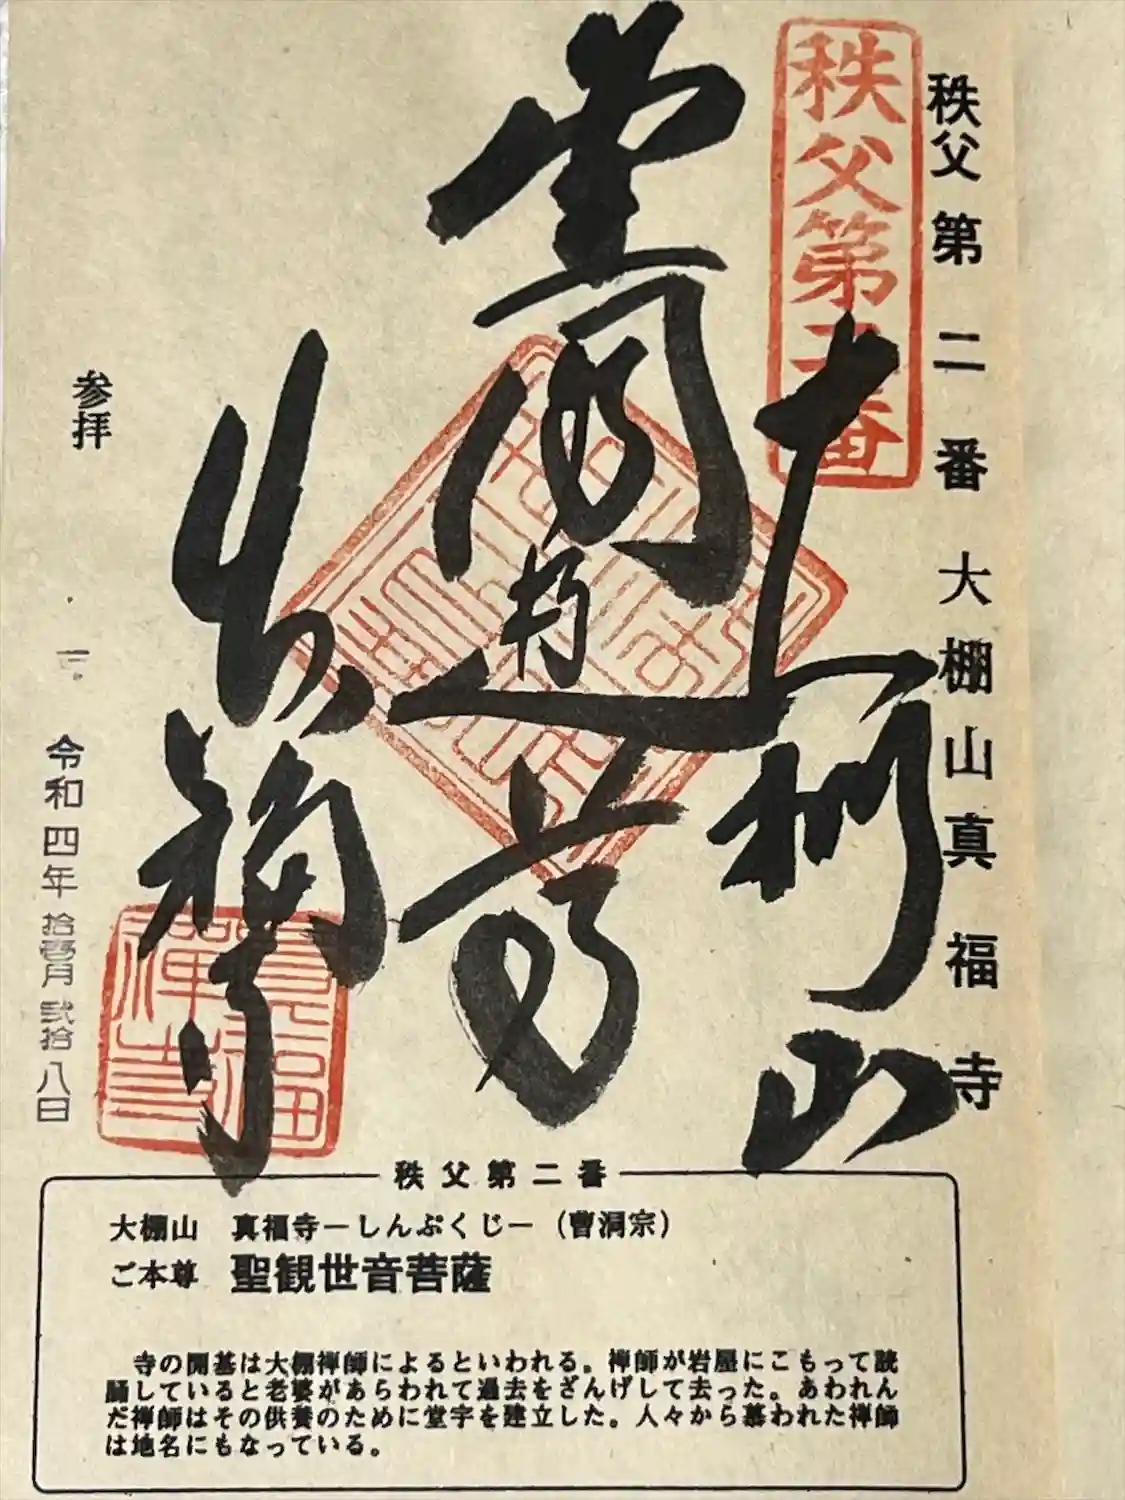 秩父第二番大棚山真福寺
秩父第二番
大棚山
真福寺
参拝
令和四年拾壱月弐拾八日
秩父第二番
大棚山　真福寺－しんぷくじ－（曹洞宗）
ご本尊　聖観世音菩薩
寺の開基は大棚禅師によるといわれる。禅師が岩屋にこもって読
誦していると老婆があらわれて過去をざんげして去った。あわれん
だ禅師はその供養のために堂宇を建立した。人々から慕われた禅師
は地名にもなっている。